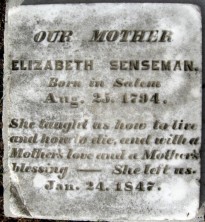 OUR MOTHER
ELIZABETH SENSEMAN.
Born in Salem
Aug. 25. 1794.
She taught us how to live
and how to die, and with a
Mother's love and a Mother's
blessing — She left us.
Jan. 24. 1847.